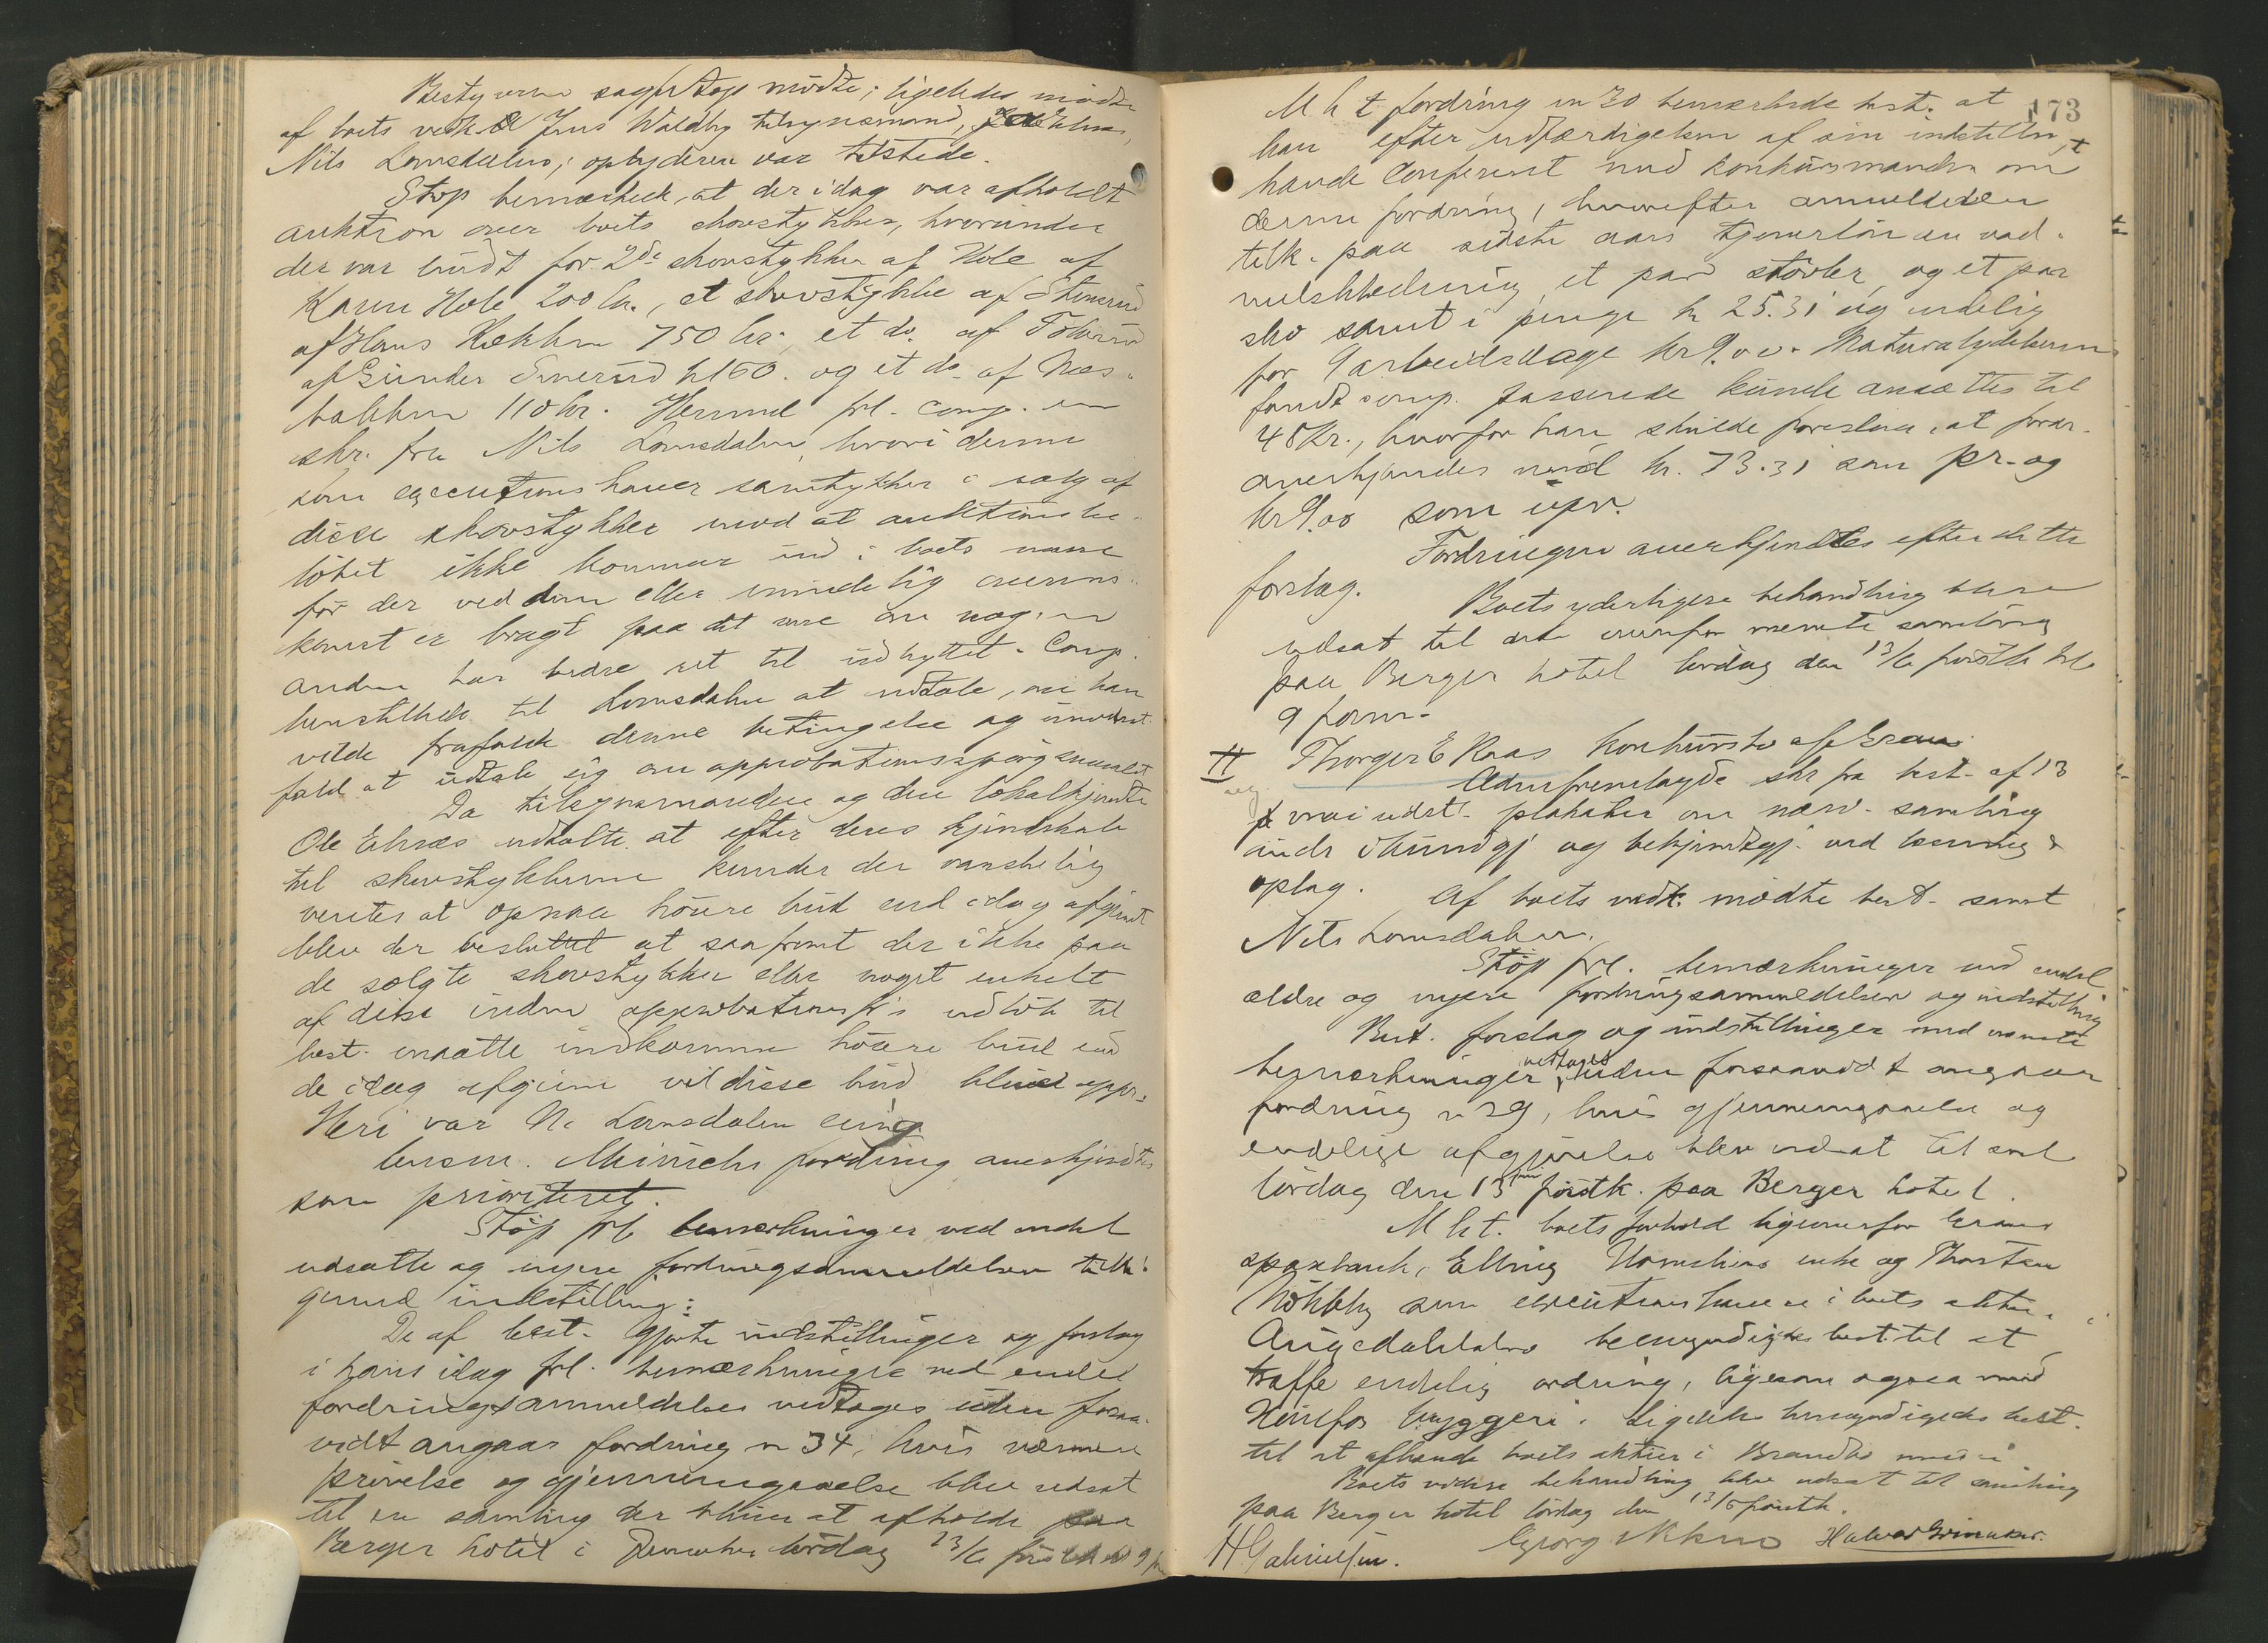 Bestyreren sagf. Støp mødte; ligeledes mødte
af boets vedk. Jens Waldby tilsynsmand,
Nils Lomsdalen; opbyderen var tilstede.
Støp bemærked, at der idag var afholdt
auktion over boets skovstykker, hvorunder
der var budt for 2de skovstykker af Hole af
Karen Hole 200 kr., et skovstykke af Stensrud
af Hans Kekken 750 kr., et do. af
af Gunder kr 160. og et do. af Næs-
bakken 110 kr. Herund frl. comp. en
skr. fra Nils Lomsdalen, hvori denne
som executionshaver samtykker i salg af
disse skovstykker mod at auktionsbe-
løbet ikke kommer ind i boets masse
før der ved dom eller mindelig overens-
komst er bragt paa det rene om nogen
anden har bedre ret til udbyttet. Comp.
henstillede til Lomsdalen at udtale, om han
vilde frafalde denne betingelse og i modsat
fald at udtale sig om approbationsspørgsmaalet.
Da tilsynsmanden og den lokalkjendte
Ole udtalte at efter deres kjendskab
til skovstykkerne kunde der vanskelig
ventes at opnaa høiere bud end idag afgivet
blev der besluttet at saafremt der ikke paa
de solgte skovstykker eller noget enkelt
af disse inden approbationsfr.s udløb til
best. maatte indkomme høiere bud end
de idag afgivne vil disse bud blive appr.
Heri var N. Lomsdalen enig
lensm. Minichs fordring anerkjendtes
som prioriteret.
Støp frl. bemærkninger ved endel
udsatte og nyere fordringsanmeldelser tillige-
med indstilling:
De af best. gjorte indstillinger og forslag
i hans idag frl. bemærkninger ved endel
fordringsanmeldelser vedtoges uden forsaa-
vidt angaar fordring n 34, hvis nærmere
prøvelse og gjennemgaaelse blev udsat
til en samling der bliver at afholde paa
Berger hotel i lørdag 13/6 førstk. kl 9 fm
173
M h t fordring n 30 bemærkede best. at
han efter udfærdigelsen af sin indstilling
havde confereret med konkursmanden om
denne fordring, hvorefter anmelderen
tilk. paa sidste aars tjenerløn en vad-
melsklædning, et par støvler, og et par
sko samt i penge kr 25.31 og endelig
for 9 arbeidsdage kr 9.00. Naturalydelserne
fandt comp. passende kunde ansættes til
48 kr., hvorfor han skulde foreslaa, at fordr.
anerkjendes med kr. 73.31 som pr. og
kr 9.00 som upr.
Fordringen anerkjendtes efter dette
forslag.
Boets yderligere behandling blev
udsat til den ovenfor nævnte samling
paa Berger hotel lørdag den 13/6 førstk kl
9 form.
II Thorger E Raas konkursbo af Gran
Adm fremlagde skr fra best. af 13
mai udst. plakater om nærv. samling
under i kundgj og bekjendtgj. ved læsning &
opslag.
Af boets vedk. mødte best. samt
Nils Lomsdalen.
Støp frl. bemærkninger ved endel
ældre og nyere fordringsanmeldelser og indstilling
Best. forslag og indstillinger med nævnte
bemærkninger vedtages uden forsaavidt angaar
fordring n 29, hvis gjennemgaaelse og
endelige afgjørelse blev udsat til saml
lørdag den 13 juni førstk. paa Berger hotel.
M h t. boets forhold ligeoverfor Grans
sparebank, Elling enke og Thorsten
som executionshavere i boets aktier i
bemyndiges best. til at
træffe endelig ordning, ligesom ogsaa med
bryggeri. Ligeledes bemyndigedes best.
til at afhænde boets aktier i Brandbu
Boets videre behandling blev udsat til samling
paa Berger hotel lørdag den 13/6 førstk.
H Gabrielsen. Georg Halvor